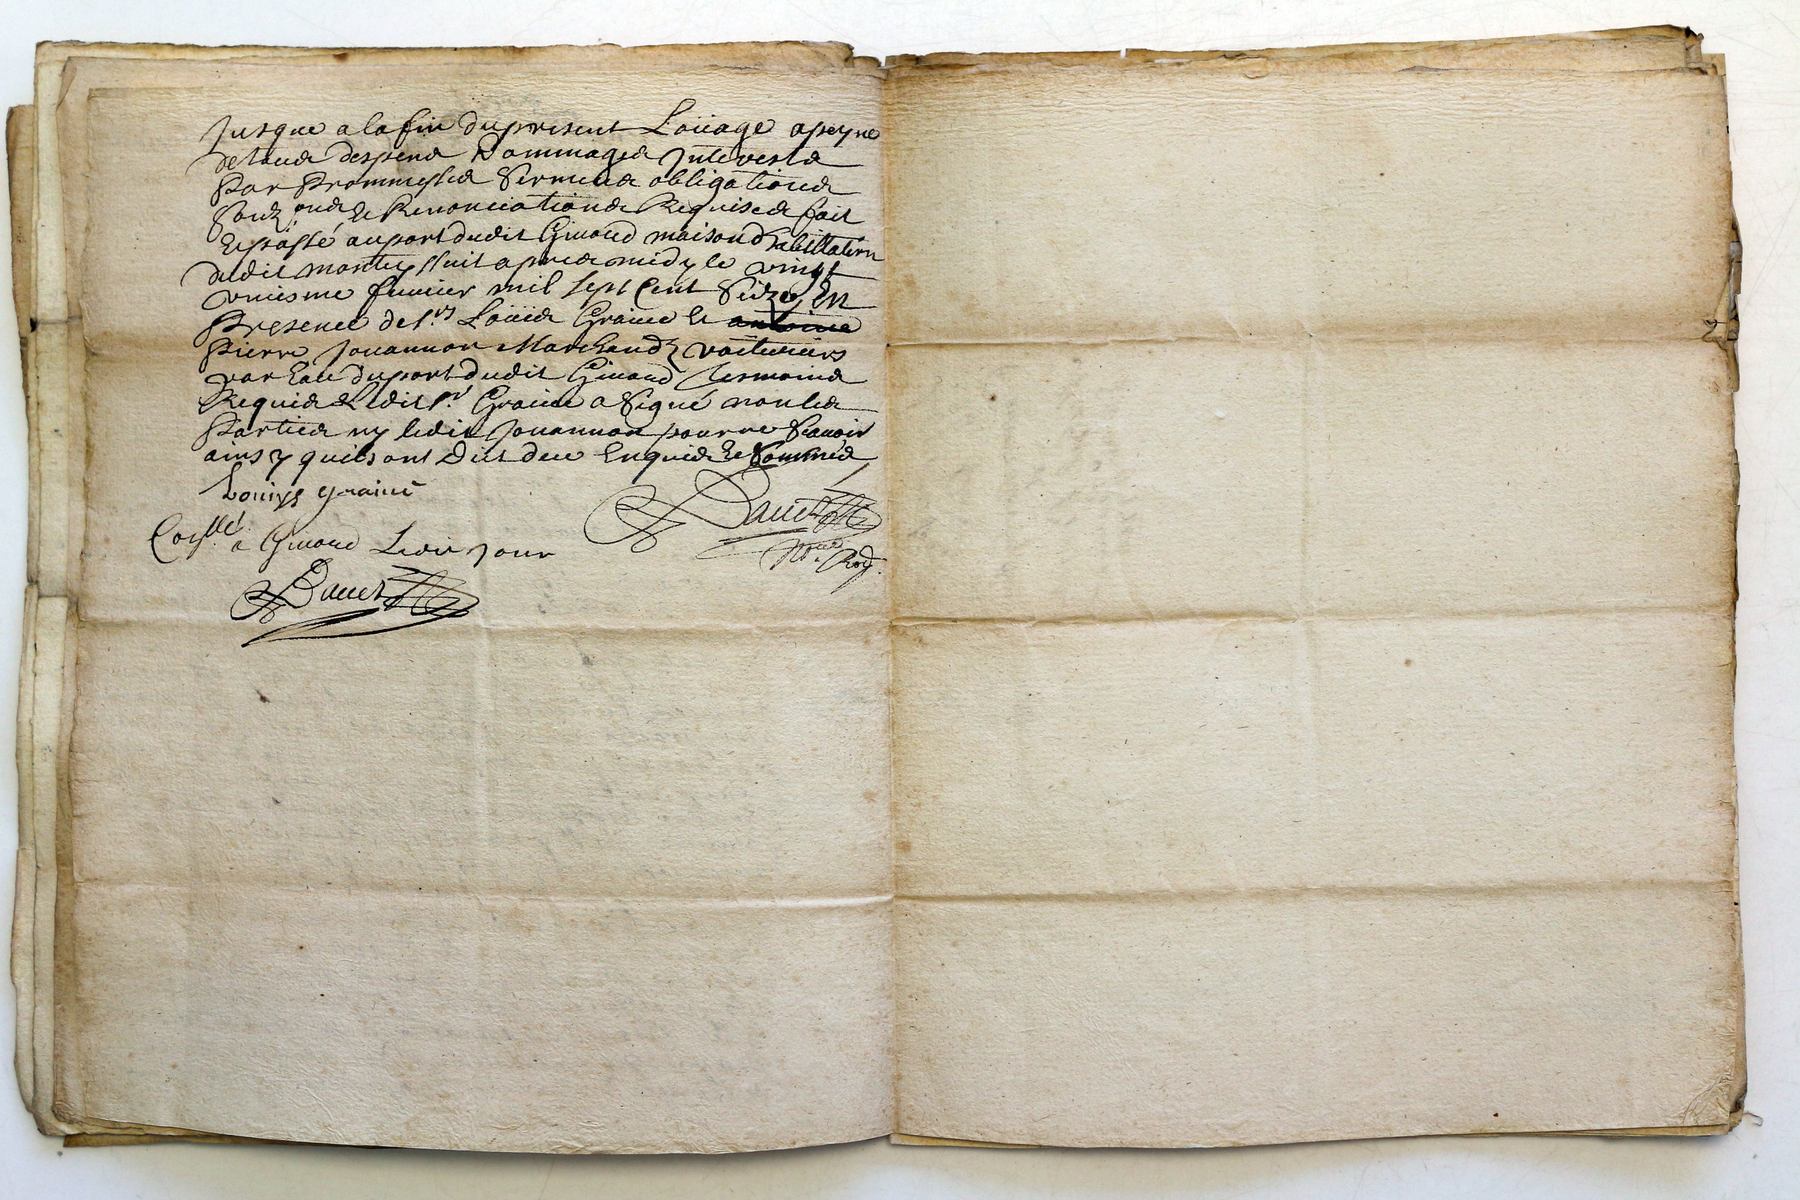 Jusque a la fin du present Loüage a peyne
de tous despens Dommages Interests
Par Prommesses Serments obligations
et Renonciations Requises fait
et passé au port dudit Givord maison d'habittation
dudit apres midy le vingt
uniesme feuvrier mil sept Cent Seize, En
Presence de s.rs Loüis Graine et antoine
Pierre Jouannon Marchands voituriers
par Eau du port dudit Givord tesmoins
Requis & ledit s.r Graine a Signé non les
Parties ny ledit Jouannon pour ne Scavoir
ainsy quils ont Dit de ce Enquis et Sommés
Louiys graine
a Givord Ledit Jour